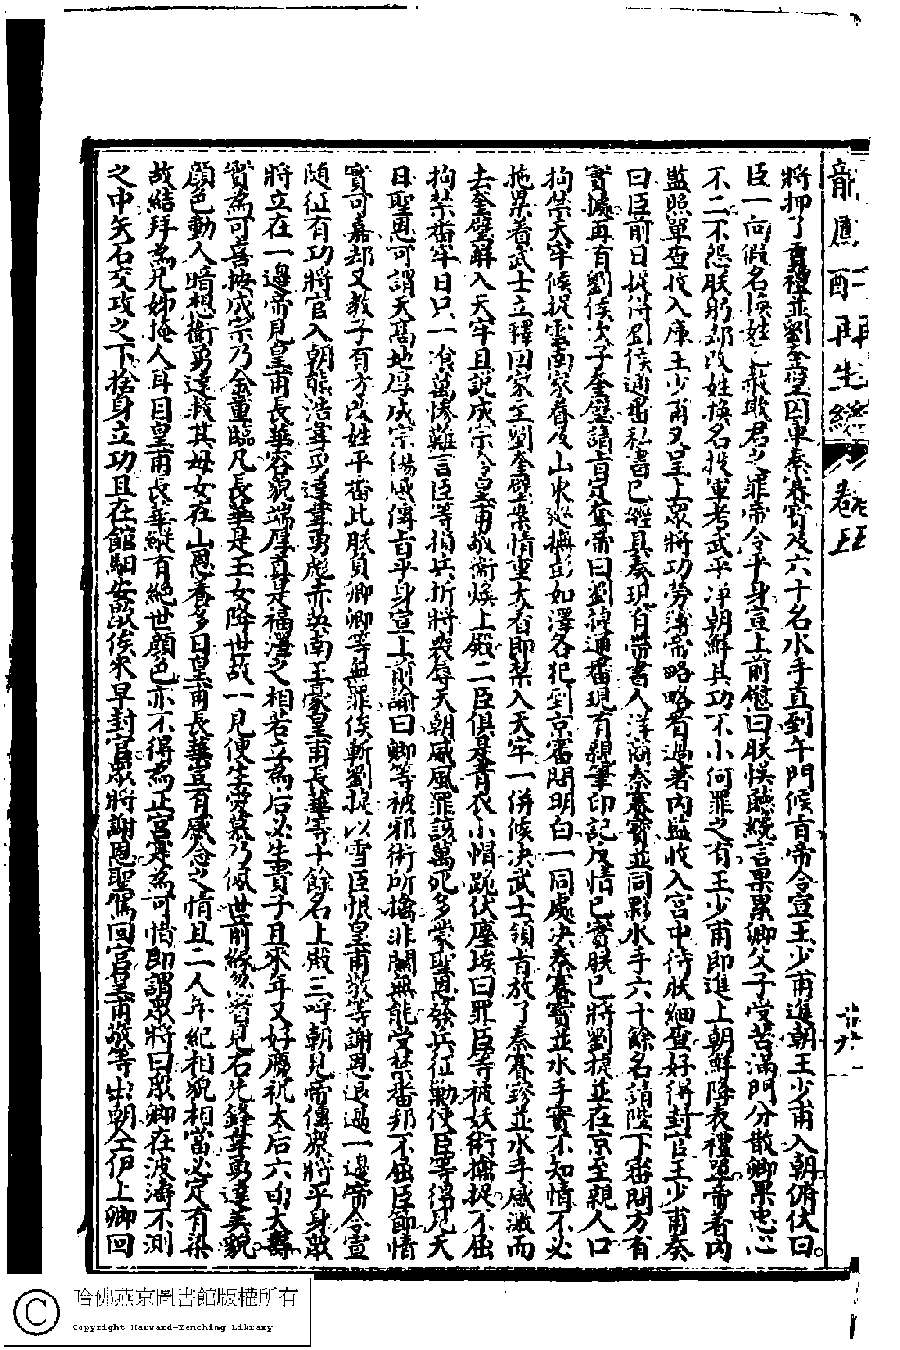 將押了貢禮並劉奎璧囚車秦賽寶及六十名水手直到午門候旨帝令宣王少甫進朝王少甫入朝俯伏曰
臣一向假名換姓乞赦欺君之罪帝令平身宣上前慰曰朕悞聽讒言果累卿父子受苦滿門分散卿果忠心
不二不怨朕躬却改姓換名投軍考武平浄朝鮮其功不小何罪之有王少甫即進上朝鮮降表禮單帝着內
監照單查收入庫王少甫又呈上眾將功勞簿帝略略看過著內監收入宮中待朕細查好得封官王少甫奏
曰臣前日捉得劉侯通番私書已經具奏現有帶書人洋商秦賽寶並同夥水手六十餘名請陛下審問方有
實據再有劉侯次子奎璧請旨定奪帝曰劉捷通番現有親筆印記反情已實朕已將劉捷並在京至親人口
拘禁天牢候捉雲南家眷及山東巡撫彭如澤各犯到京審問明白一同處决秦賽寶並水手實不知情不必
拖累着武士立釋回家至劉奎璧案情重大着即禁入天牢一併候决武士領旨放了秦賽寶並水手感激而
去奎璧解入天牢且說成宗令皇甫敬衛煥上殿二臣俱是青衣小帽跪伏塵埃曰罪臣等被妖術擒捉不屈
拘禁番牢日只一飡萬慘難言臣等損兵折將喪辱天朝威風罪該萬死多蒙聖恩發兵征勦使臣等得見天
日聖恩可謂天高地厚成宗傷感傳旨平身宣上前諭曰卿等被邪術所擒非關無能受禁番邦不屈臣節情
實可嘉却又教子有方改姓平番此朕負卿卿等無罪俟斬劉捉以雪臣恨皇甫敬等謝恩退過一邊帝令宣
隨征有功將官入朝熊浩韋勇達韋勇彪赤英南王豪皇甫長華等十餘名上殿三呼朝見帝傳眾將平身眾
將立在一邊帝見皇甫長華容貌端厚真是福澤之相若立為后必生貴子且來年又好應祝太后六旬大壽
實為可喜按成宗乃金童臨凡長華是玉女降世故一見便生愛慕乃佩世前緣又實見右先鋒韋勇達美貌
顏色動人暗想衛勇達救其母女在山恩養多日皇甫長華豈有感念之情且二人年紀相貌相當必定有染
故結拜為兄姊掩人耳目皇甫長華縱有絕世顏色亦不得為正宮寔為可惜即謂眾將曰眾卿在波濤不測
之中矢石交攻之下捨身立功且在館馹安歇俟來早封官眾將謝恩聖駕回宮皇甫敬等出朝尹上卿回
龍鳳配再生緣 卷五
廿九
哈佛燕京圖書館版權所有
Copyright Harvard-Yenching Library